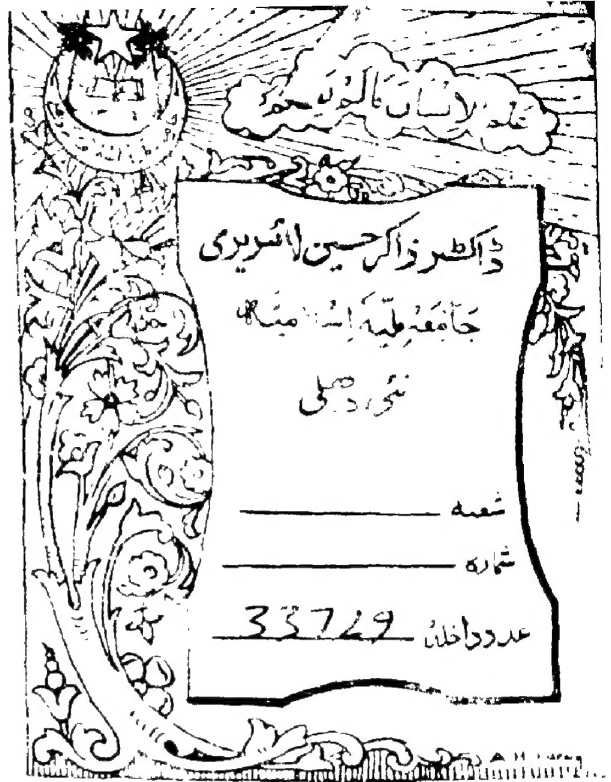 علم الانسان مالم يعلم
ڈاکٹر ذاکر حسین لائبریری
جامعہ ملیہ اسلامیہ
نئی دہلی
شعبہ
شمارہ
عدد داخلہ 33729